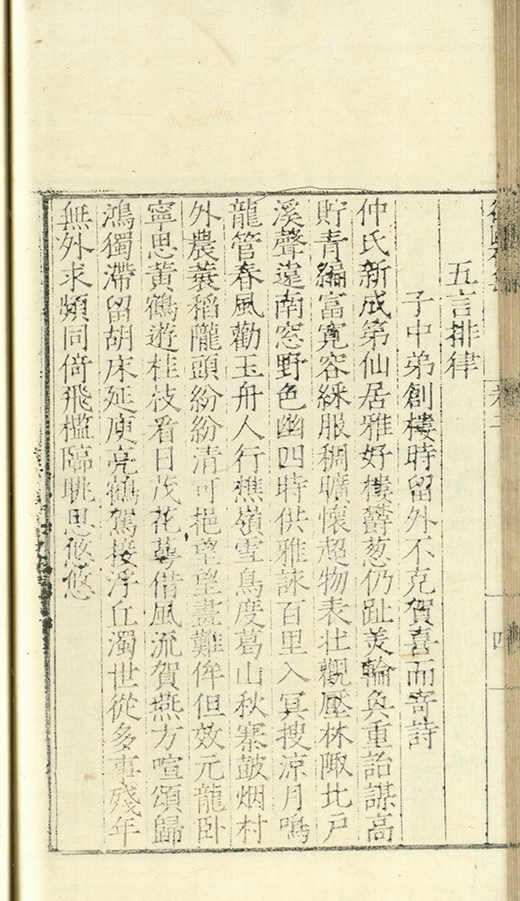 五言排律
子中弟創樓時留外不克賀喜而寄詩
仲氏新成第仙居雅好樓欝葱仍趾美輪奐重詒謀高
貯青編富寬容綵服稠曠懷超物表壯觀壓林陬北戶
溪聲遠南窓野色幽四時供雅詠百里入冥搜涼月鳴
龍管春風勸玉舟人行樵嶺雪鳥度葛山秋寨皷烟村
外農蓑稻隴頭紛紛清可挹望望盡難侔但效元龍卧
寧思黃鶴遊桂枝看日茂花萼借風流賀燕方喧頌歸
鴻獨滯留胡床延庾亮鶴駕接浮丘濁世從多事殘年
無外求頻同倚飛檻臨眺思悠悠